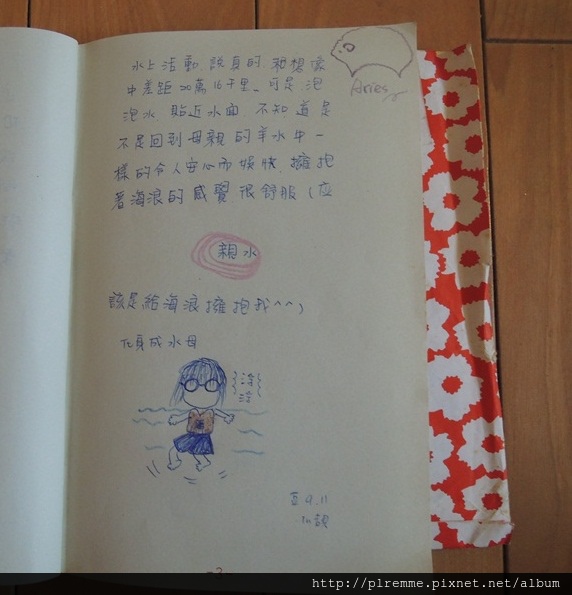 水上活動,說真的,和想像
Aries
中差距20萬16千里。可是,泡
泡水,貼近水面,不知道是
不是回到母親的羊水中一
樣的令人安心而愉快,擁抱
著海浪的感覺很舒服(应
親水
該是給海浪擁抱我^^)
化身成水母
浮
浮
9.11
-2-
http://plremme.pixnet.net/album